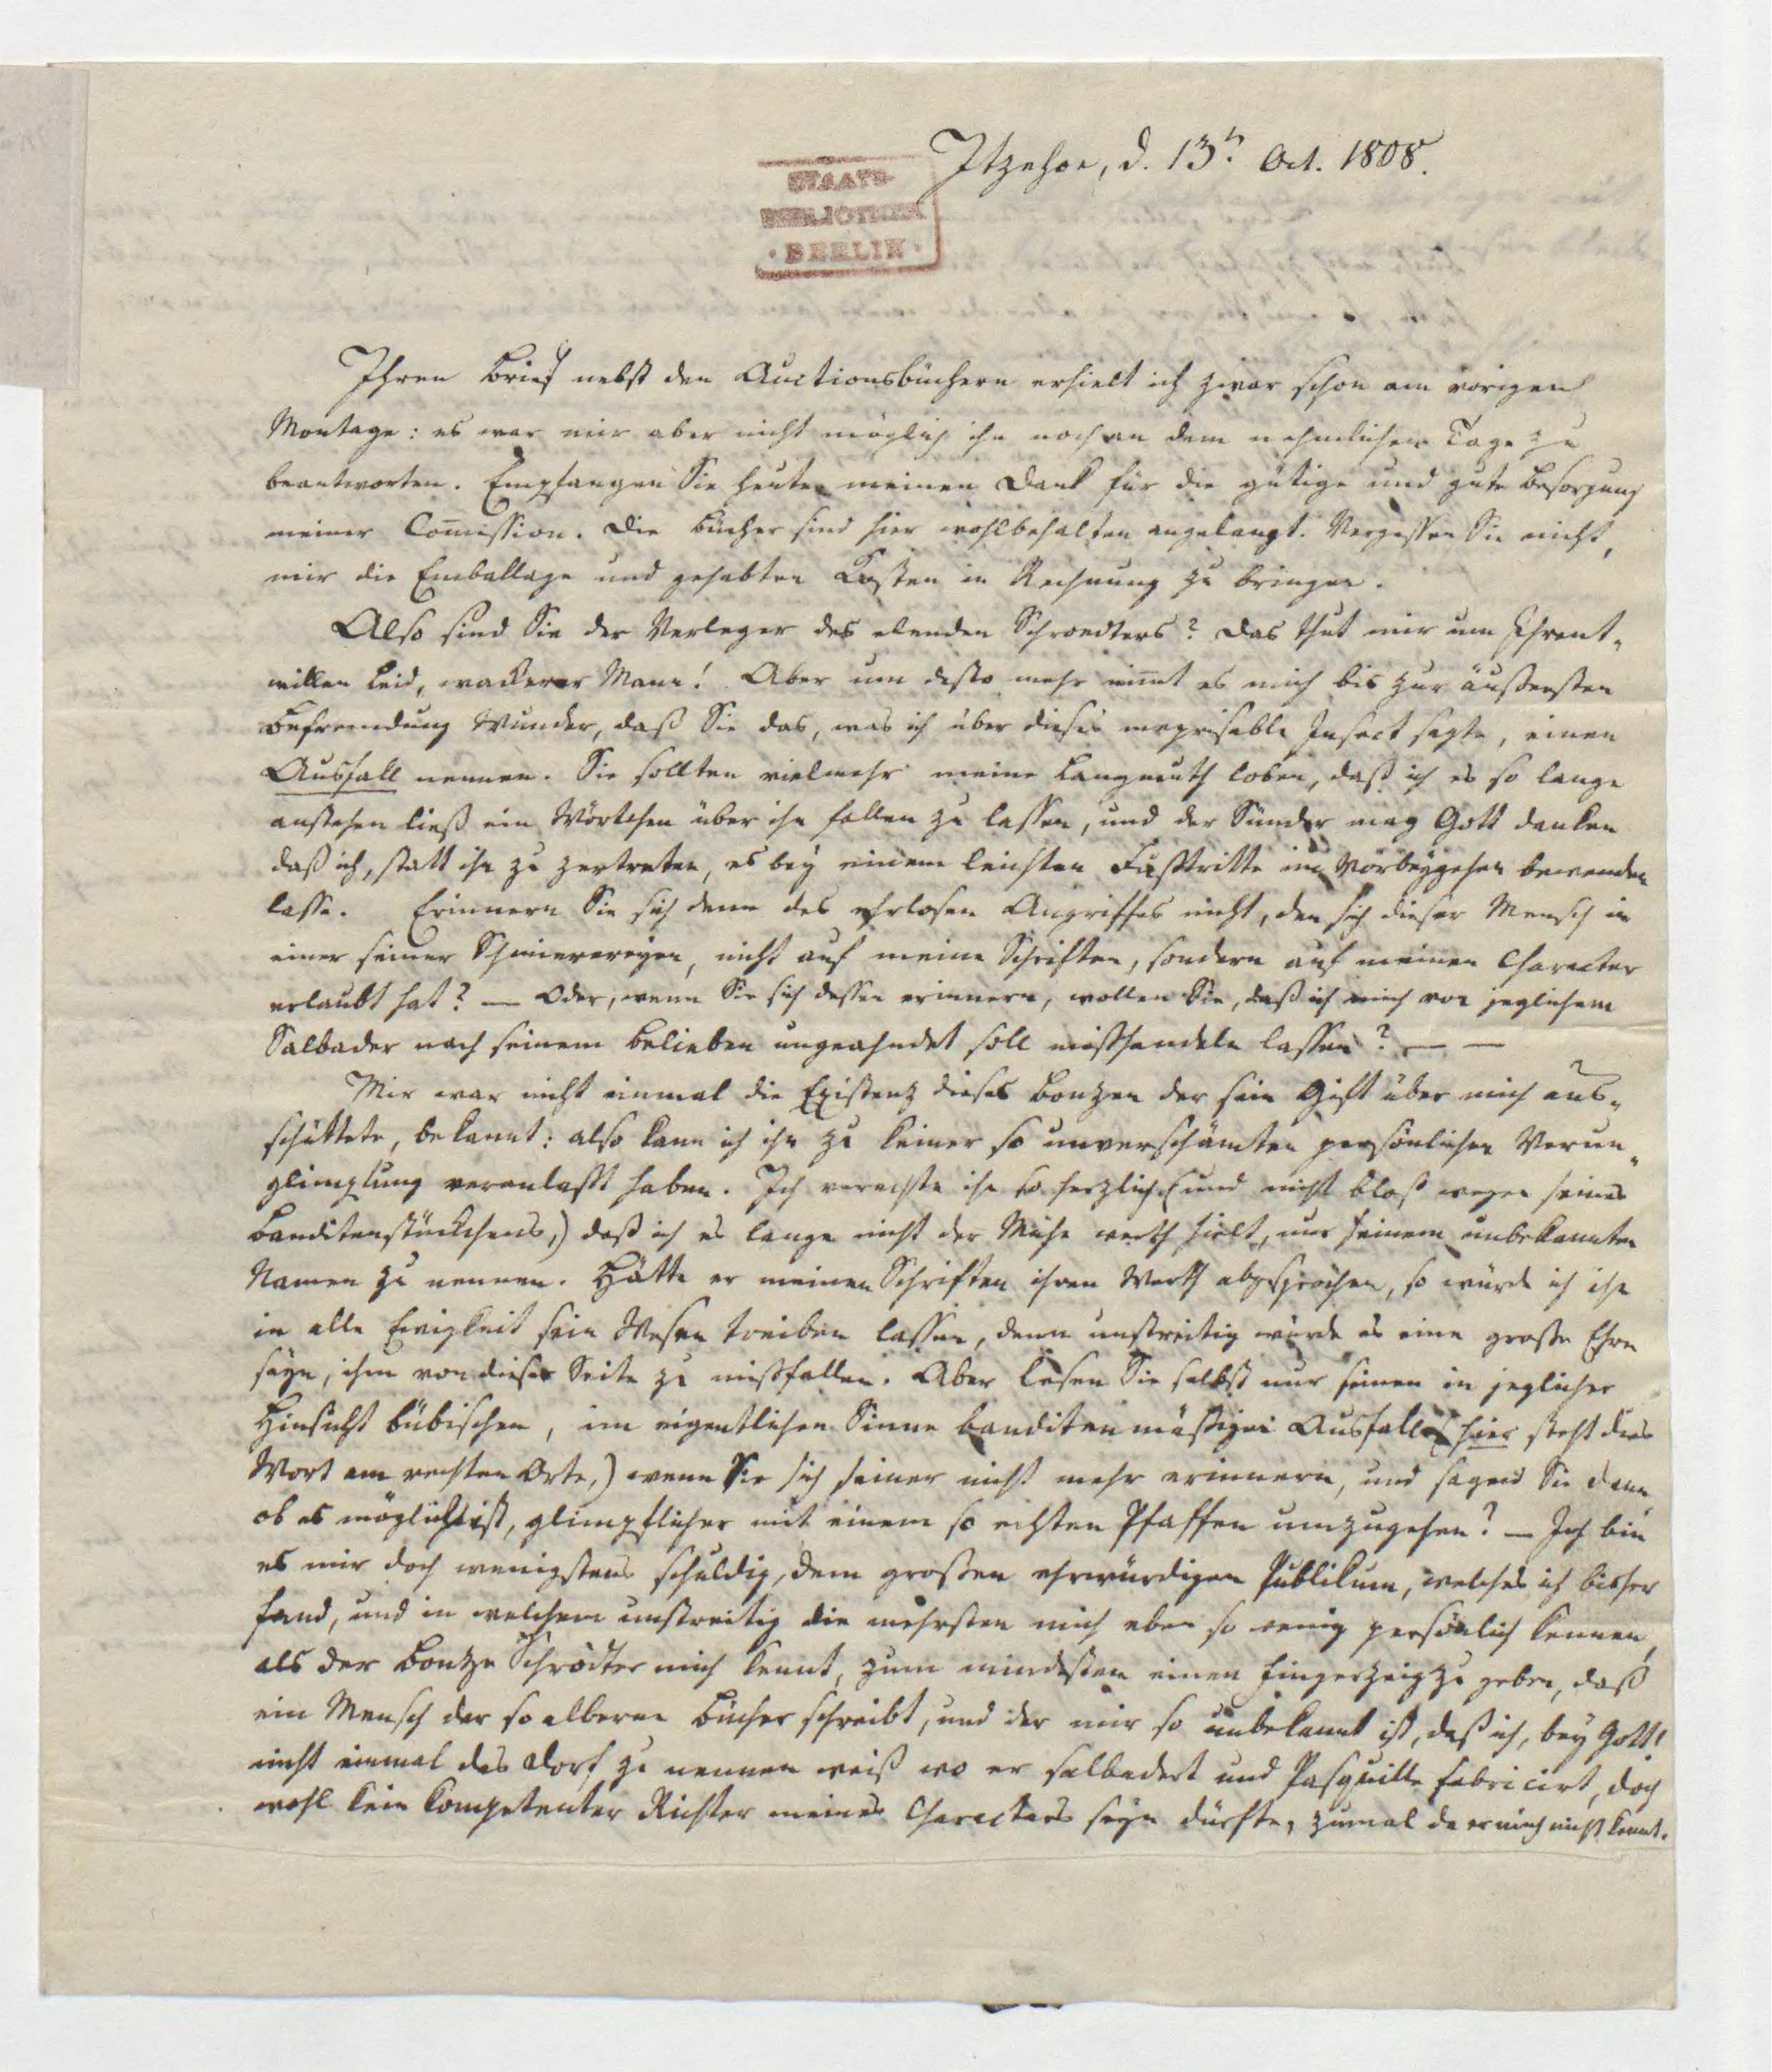 Itzehoe, d. 13t. Oct. 1808.
STAATS-
BIBLIOTHEK
· BERLIN ·
Ihren Brief nebst den Auctionsbüchern erhielt ich zwar schon am vorigen
Montage: es war mir aber nicht möglich ihn noch an dem nehmlichen Tage zu
beantworten. Empfangen Sie heute meinen Dank für die gütige und gute Besorgung
meiner Com̄ission. Die Bücher sind hier wohlbehalten angelangt. Vergessen Sie nicht,
mir die Emballage und gehabten Kosten in Rechnung zu bringen.
Also sind Sie der Verleger des elenden Schroedters? Das thut mir um Ihrent-
willen leid, wackerer Mann! Aber um desto mehr nim̄t es mich bis zur äußersten
Befremdung Wunder, daß Sie das, was ich über dieses meprisable Insect sagte, einen
Ausfall nennen. Sie sollten vielmehr meine Langmuth loben, daß ich es so lange
anstehen ließ ein Wörtchen über ihn fallen zu lassen, und der Sünder mag Gott danken
daß ich, statt ihn zu zertreten, es bey einem leichten Fußtritte im Vorbeygehen bewenden
lasse. Erinnern Sie sich denn des ehrlosen Angriffes nicht, den sich dieser Mensch in
einer seiner Schmierereyen, nicht auf meine Schriften, sondern auf meinen Character
erlaubt hat? — Oder, wenn Sie sich dessen erinnern, wollen Sie, daß ich mich von jeglichem
Salbader nach seinem Belieben ungeahndet soll mißhandeln lassen? — —
Mir war nicht einmal die Existenz dieses Bonzen der sein Gift über mich aus-
schüttete, bekannt: also kann ich ihn zu keiner so unverschämten persönlichen Verun-
glimpfung veranlaßt haben. Ich verachte ihn so herzlich (und nicht bloß wegen seines
Banditenstückchens,) daß ich es lange nicht der Mühe werth hielt, nur seinen unbekannten
Namen zu nennen. Hätte er meinen Schriften ihren Werth abgesprochen, so würde ich ihn
in alle Ewigkeit sein Wesen treiben lassen, denn unstreitig würde es eine große Ehre
seyn, ihm von dieser Seite zu mißfallen. Aber lesen Sie selbst nur seinen in jeglicher
Hinsicht bübischen, im eigentlichen Sinne banditenmäßigen Ausfall (hier steht das
Wort am rechten Orte,) wenn Sie sich seiner nicht mehr erinnern, und sagen Sie dann,
ob es möglich ist, glimpflicher mit einem so echten Pfaffen umzugehen? — Ich bin
es mir doch wenigstens schuldig, dem großen ehrwürdigen Publikum, welches ich bisher
fand, und in welchem unstreitig die mehrsten mich eben so wenig persönlich kennen,
als der Bonze Schrödter mich kennt, zum mindesten einen Fingerzeig zu geben, daß
ein Mensch der so alberne Bücher schreibt, und der mir so unbekannt ist, daß ich, bey Gott!
nicht einmal das Dorf zu nennen weiß wo er salbadert und Pasquille fabricirt, doch
wohl kein kompetenter Richter meines Characters seyn dürfte, zumal da er mich nicht kennt.